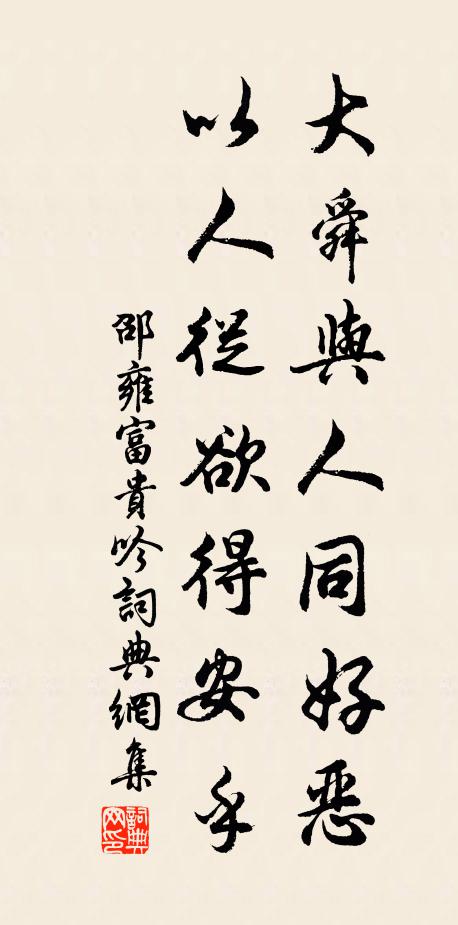 大舜與人同好惡
以人從欲得安乎
邵雍富貴吟詞典網集
詞典
网印